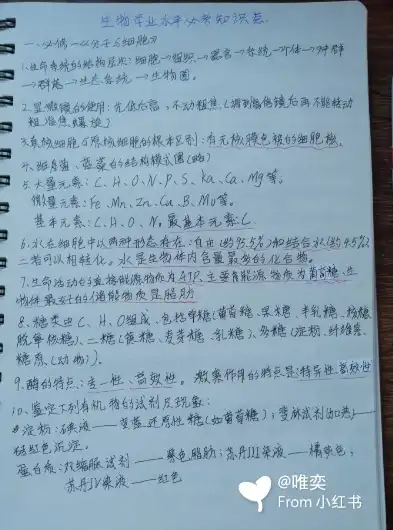 生物学业水平必考知识点
一.必修一《分子与细胞》
1.生命系统的结构层次:细胞→组织→器官→系统→个体→种群
→群落→生态系统→生物圈。
2.显微镜的使用:先低后高,不动粗焦(换到高倍镜后再不能转动
粗准焦螺旋)
3.真核细胞与原核细胞的根本区别:有无核膜包被的细胞核。
4.细菌、蓝藻的结构模式图(略)
5.大量元素:C、H、O、N、P、S、Ka、Ca、Mg等。
微量元素:Fe、Mn、Zn、Cu、B、Mo等。
基本元素:C、H、O、N。最基本元素C.
6.水在细胞中以两种形态存在:自由(约95.5%)和结合水(约4.5%)
二者可以相转化。水是生物体内含量最多的化合物。
7.生命活动的直接能源物质为ATP、主要能源物质为葡萄糖、生
物体最好的储能物质是脂肪
8.糖类由C、H、O组成,包括单糖(葡萄糖、果糖、半乳糖、核糖、
脱氧核糖)、二糖(蔗糖、麦芽糖、乳糖)、多糖(淀粉、纤维素、
糖原(动物))。
9.酶的特点:专一性、高效性。激素作用的特点是:特异性、高效性
10.鉴定下列有机物的试剂及现象:
淀粉:碘液——变蓝 还原性糖(如葡萄糖):斐林试剂(加热)——
砖红色沉淀。
蛋白质:双缩脲试剂——紫色 脂肪:苏丹III染液——橘黄色;
苏丹IV染液——红色
@唯奕
From 小红书